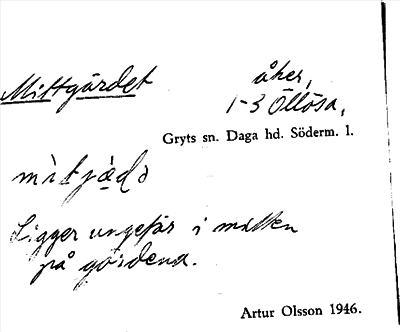 Mittgärdet åker,
1-3 Öllösa,
Gryts sn. Daga hd. Söderm. l.
Ligger ungefär i mitten
på gärdena.
Artur Olsson 1946.